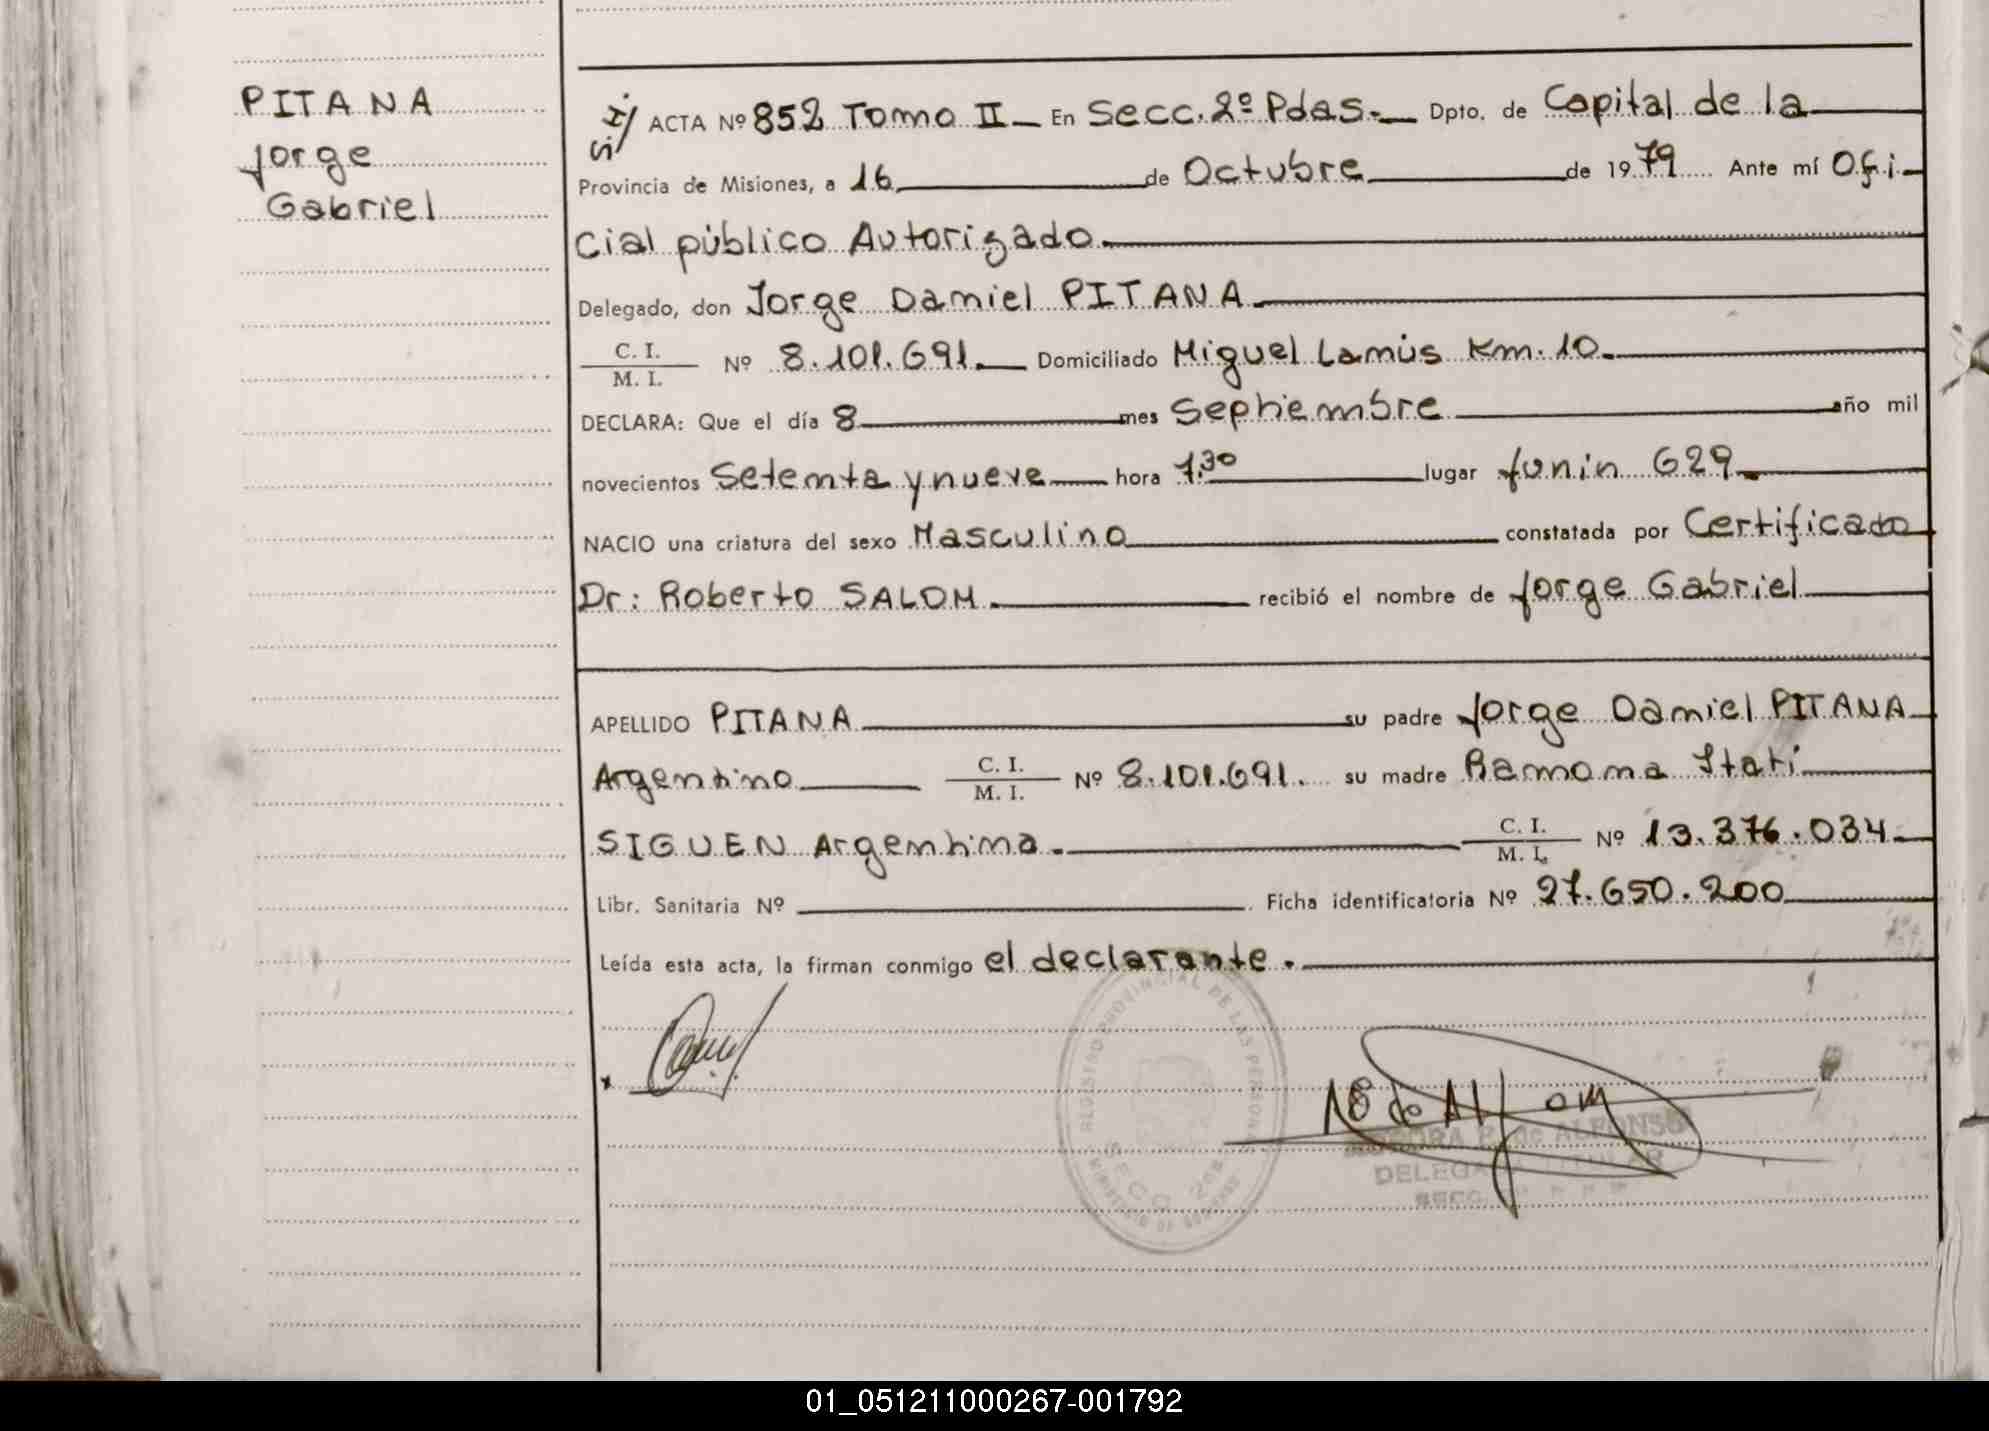 PITANA
Jorge
Gabriel
S.I/ ACTA Nº 852 Tomo II En Secc. 2º Pdas. Dpto. de Capital de la
Provincia de Misiones, a 16 de Octubre de 1979 Ante mí Ofi-
cial público Autorizado.
Delegado, don Jorge Daniel PITANA
C. I.
M. I. Nº 8.101.691. Domiciliado Miguel Lanús Km. 10.
DECLARA: Que el día 8 mes Septiembre año mil
novecientos Setenta y nueve hora 7,30 lugar Junin 629
NACIO una criatura del sexo Masculino constatada por Certificado
Dr: Roberto SALOM. recibió el nombre de Jorge Gabriel
APELLIDO PITANA su padre Jorge Daniel PITANA
Argentino C. I.
M. I. Nº 8.101.691. su madre Ramona Itatí
SIGUEN Argentina. C. I.
M. I. Nº 13.376.034
Libr. Sanitaria Nº Ficha identificatoria Nº 27.650.200
Leída esta acta, la firman conmigo el declarante.
REGISTRO PROVINCIAL DE LAS PERSONAS
SECC. 2da
MINISTERIO DE GOBIERNO
de ALFONSO
DELEGADA TITULAR
SECC.
01_051211000267-001792